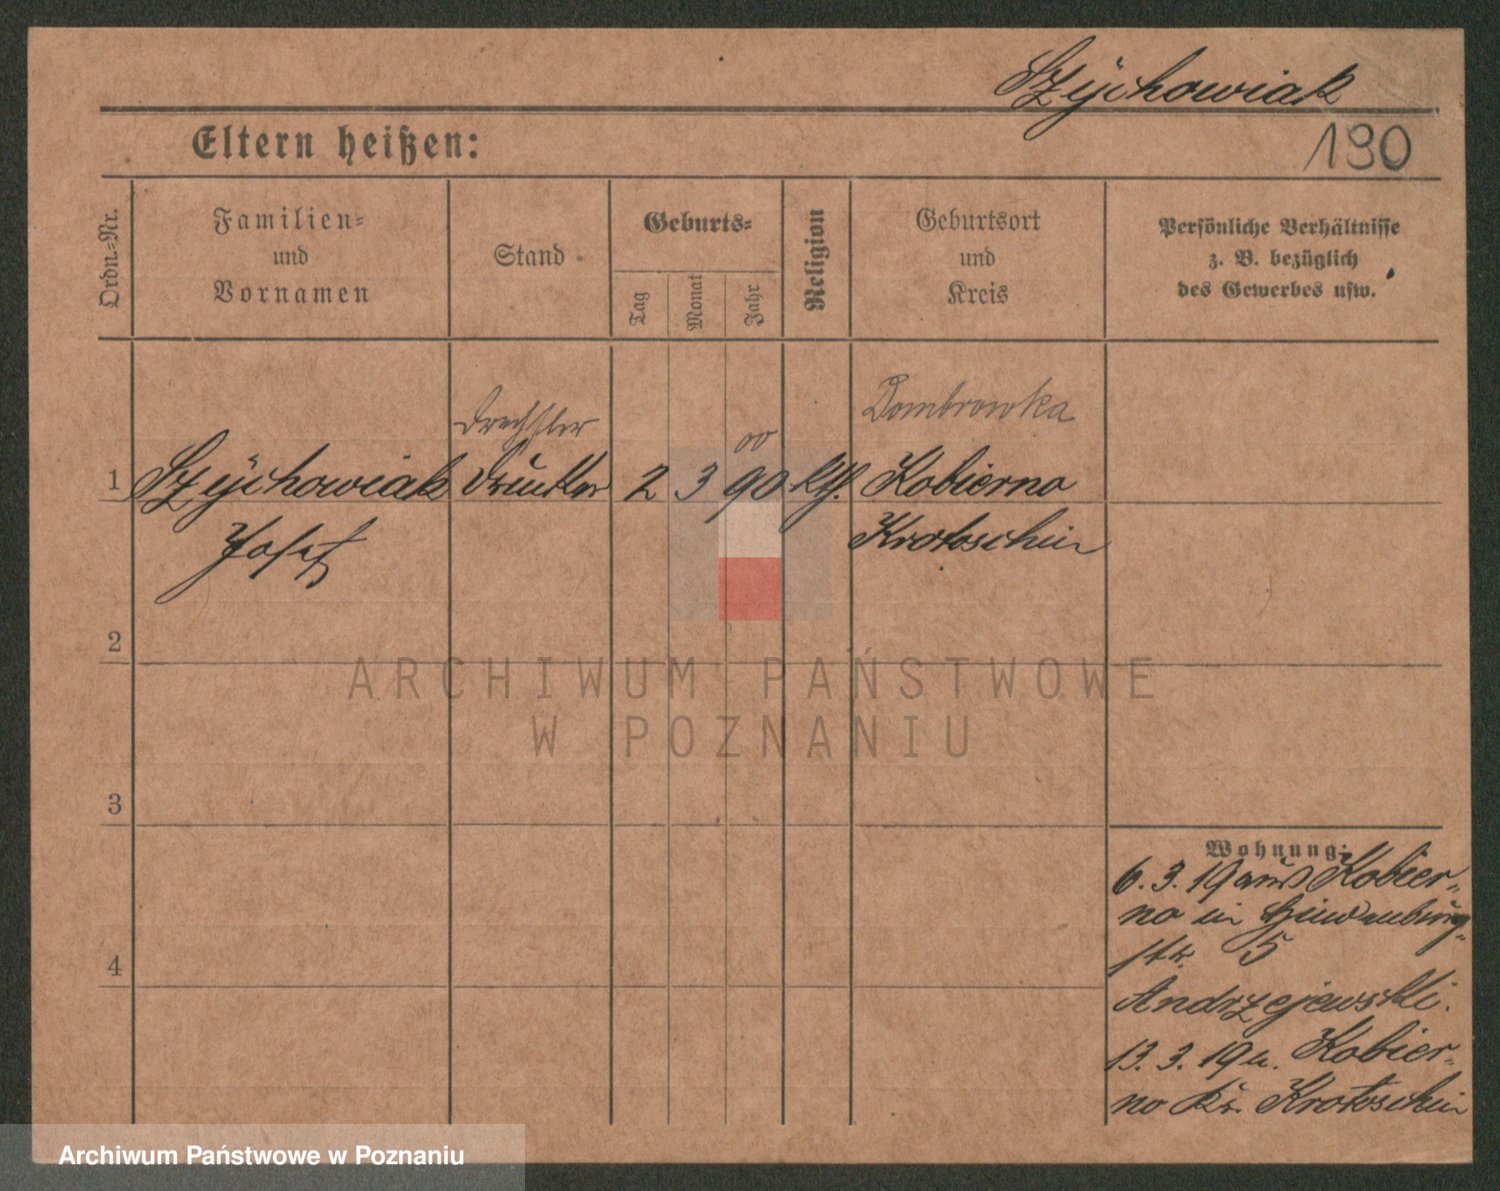 Szÿchowiak
190
Eltern heißen:
Ordn.-Nr.
Familien-
und
Vornamen
Stand
Geburts-
Tag
Monat
Jahr
Religion
Geburtsort
und
Kreis
Persönliche Verhältnisse
z. B. bezüglich
des Gewerbes usw.
Drechsler
00
Dombrowka
1 Szÿchowiak 2 3 90 kth. Kobierno
Josef
Krotoschin
2
3
4
Wohnung:
6. 3. 19 aus Kobier-
no in Hindenburg-
str. 5
Andrzejewski.
13. 3. 19 n. Kobier-
no Kr. Krotoschin
ARCHIWUM PAŃSTWOWE
W POZNANIU
Archiwum Państwowe w Poznaniu